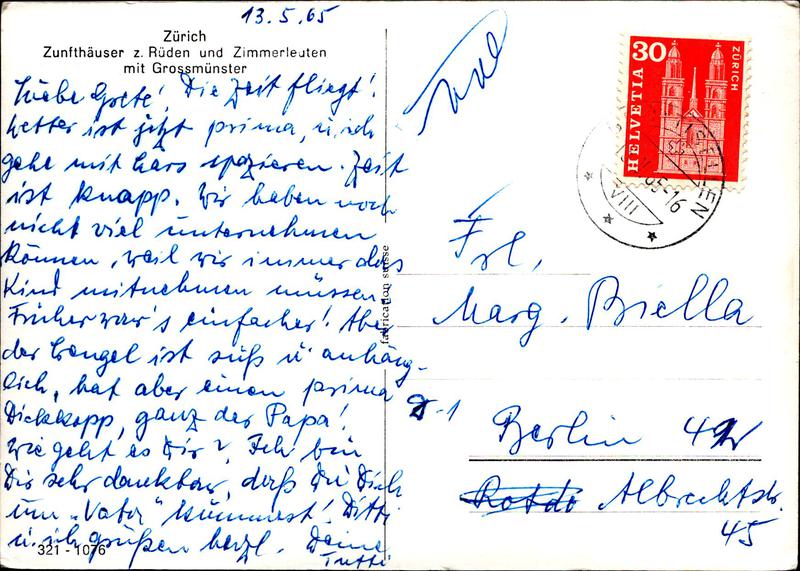 13.5.65
Zürich
Zunfthäuser z. Rüden und Zimmerleuten
mit Grossmünster
Liebe Grete! Die Zeit fliegt!
Wetter ist jetzt prima, u. ich
gehe mit Lars spazieren. Zeit
ist knapp. Wir haben noch
nicht viel unternehmen
können, weil wir immer das
Kind mitnehmen müssen.
Früher war's einfacher! Aber
der Bengel ist süß u. anhäng-
lich, hat aber einen prima
Dickkopp, ganz der Papa!
Wie geht es Dir? Ich bin
Dir sehr dankbar, daß Du Dich
um „Vater" kümmerst! Ditti
u. ich grüßen herzl. Deine
Tutti
321 - 1076
fabrication suisse
HELVETIA
30
ZÜRICH
65-16
VIII
Frl.
Marg. Biella
-1
Berlin 42
Albrechtstr.
45